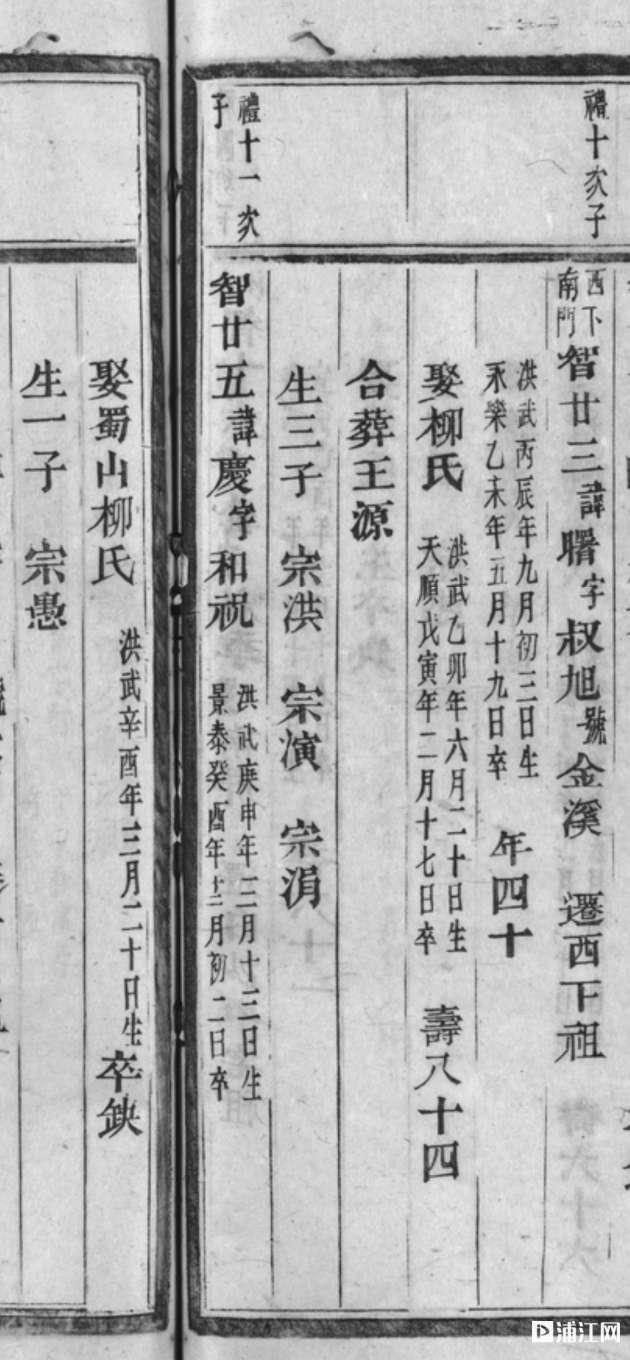 禮十次子
西下南門智廿三諱曙字叔旭號金溪 遷西下祖
洪武丙辰年九月初三日生
永樂乙未年五月十九日卒 年四十
娶柳氏 洪武乙卯年六月二十日生
天順戊寅年二月十七日卒 壽八十四
合葬王源
生三子 宗洪 宗演 宗涓
禮十一次子
智廿五諱慶字和祝 洪武庚申年三月十三日生
景泰癸酉年十二月初二日卒
娶蜀山柳氏 洪武辛酉年三月二十日生卒缺
生一子 宗愚
浦江网